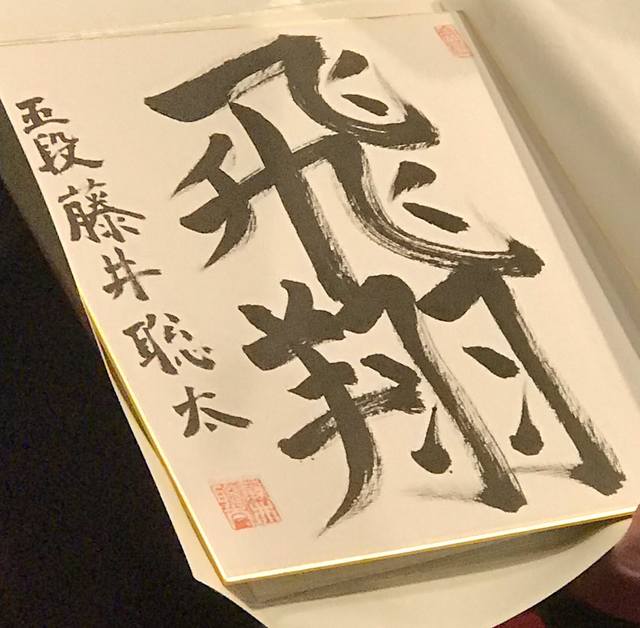 飛翔
五段 藤井聡太